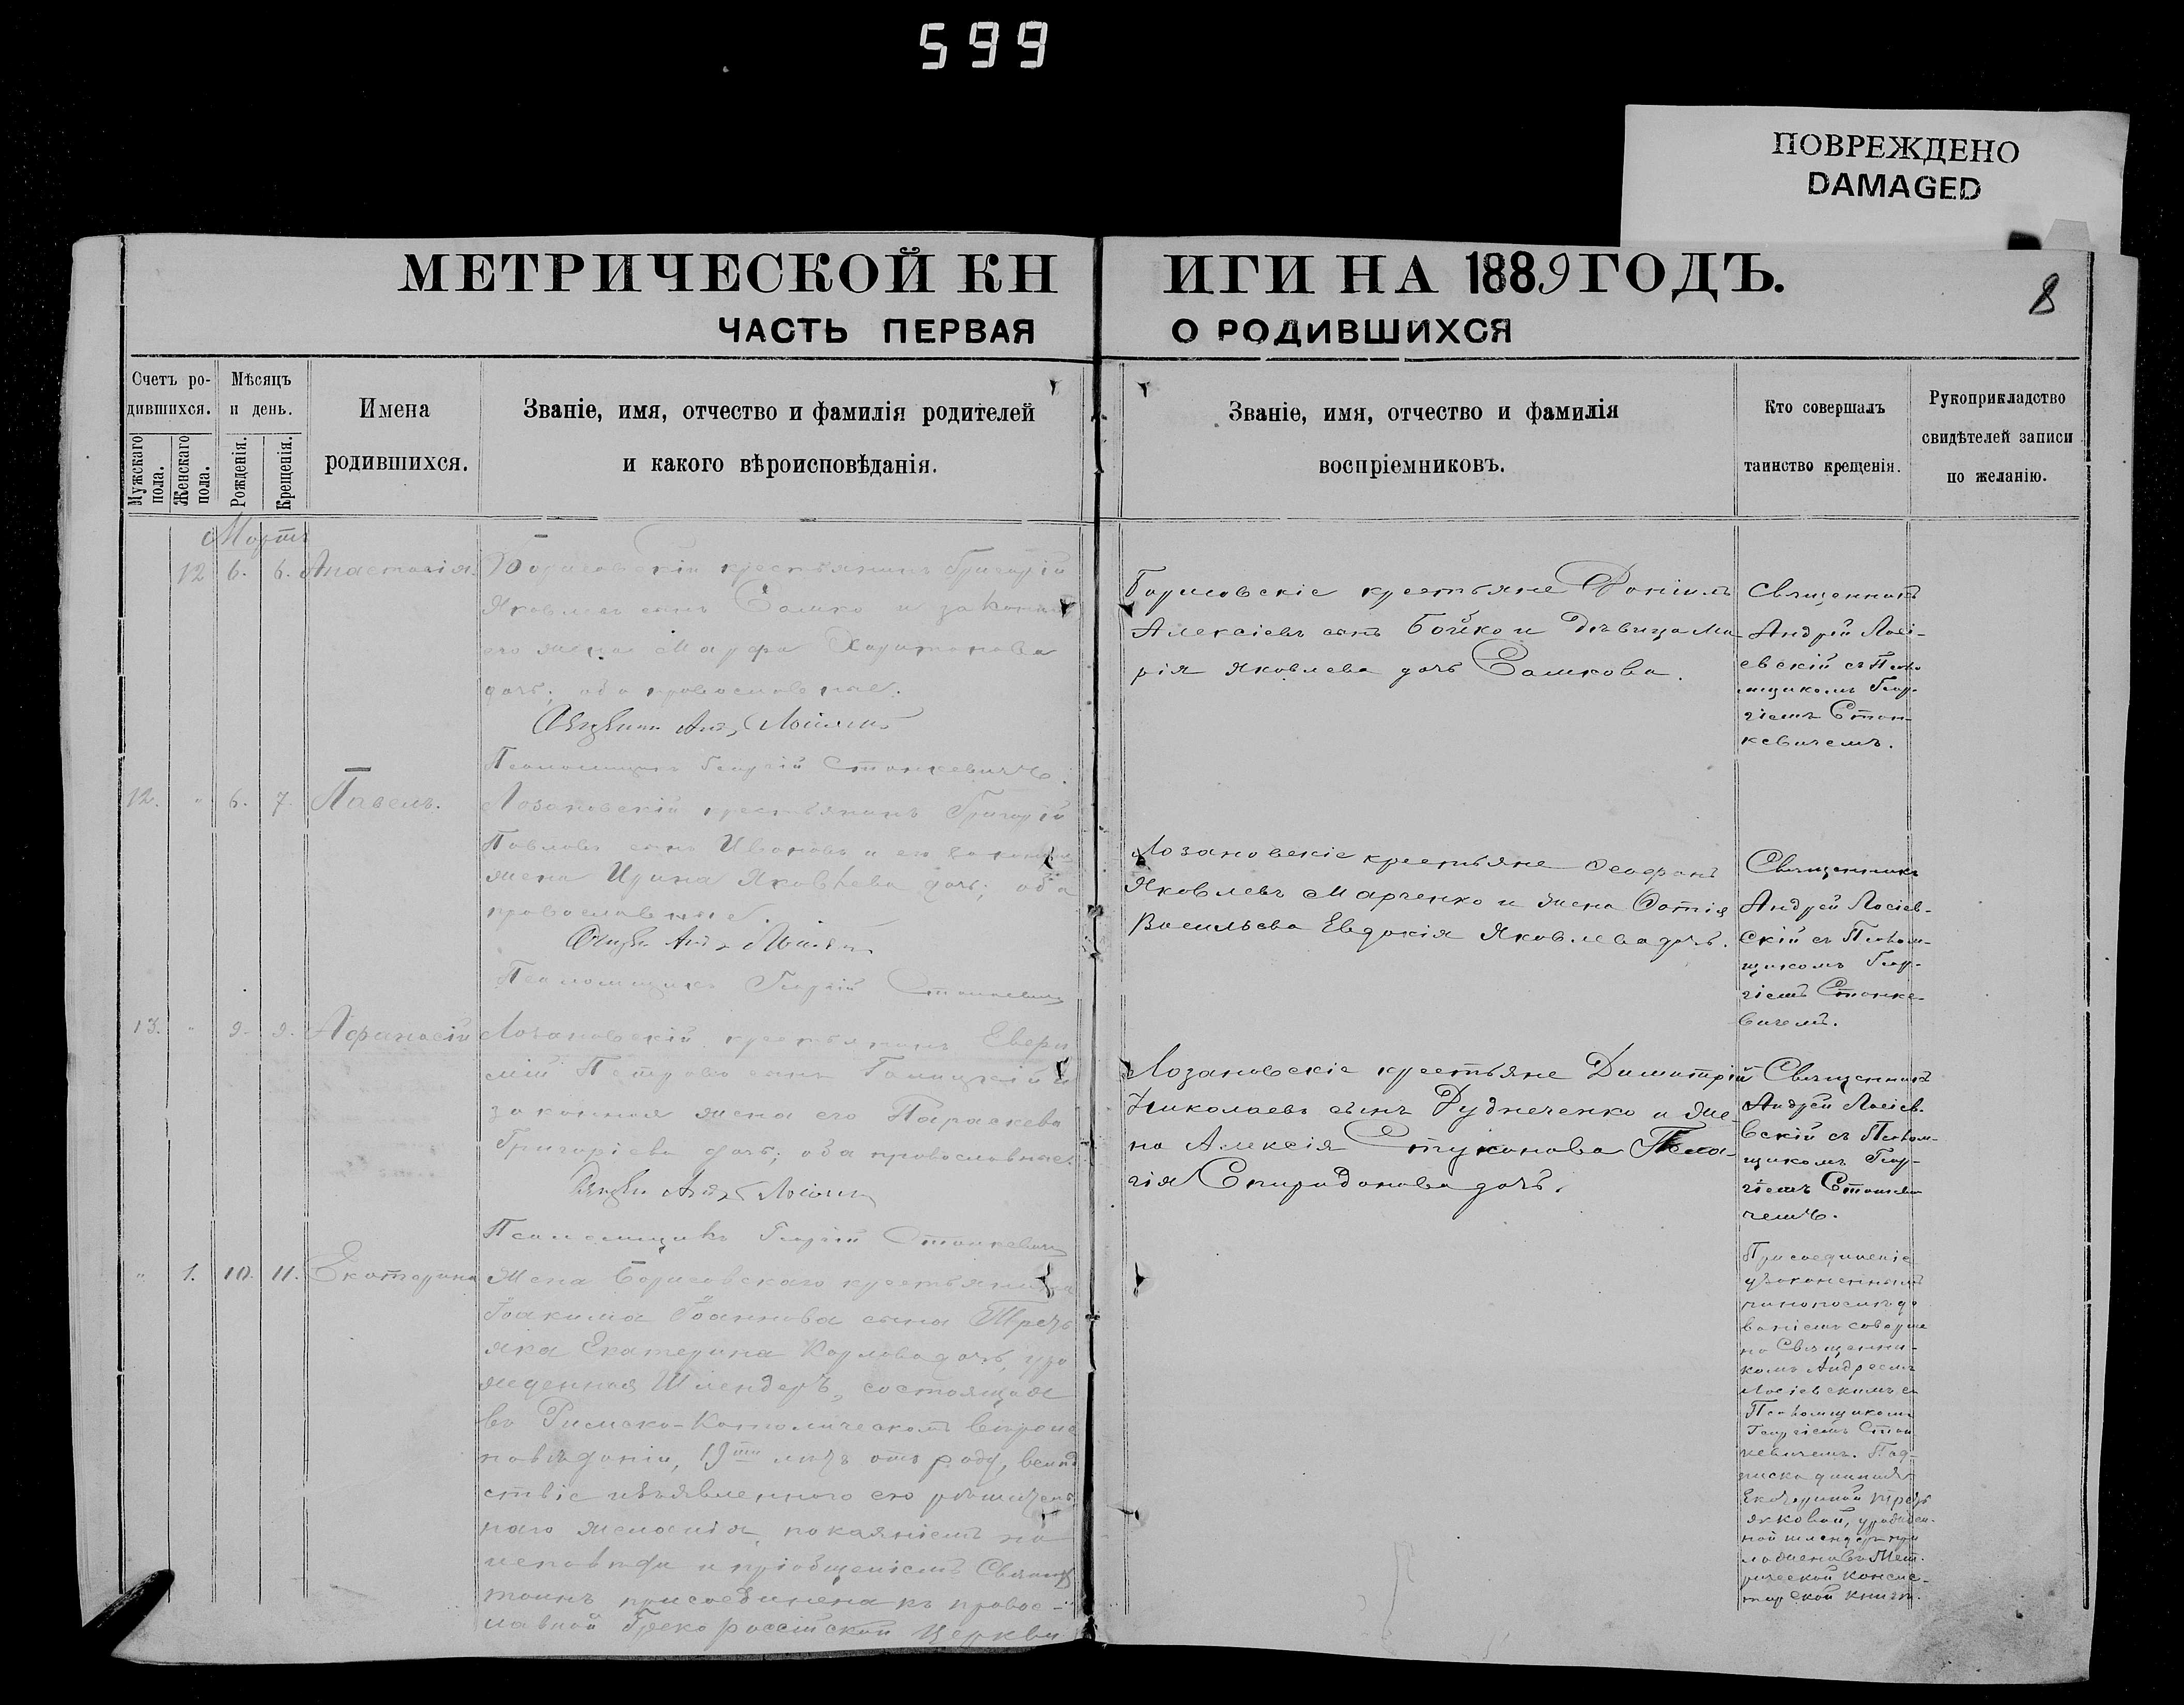 599
ПОВРЕЖДЕНО
DAMAGED
МЕТРИЧЕСКОЙ КНИГИ НА 1889 ГОДЪ.
8
ЧАСТЬ ПЕРВАЯ О РОДИВШИХСЯ
Счетъ ро-
дившихся.
Мужскаго пола.
Женскаго пола.
Мѣсяцъ
и день.
Рожденія.
Крещенія.
Имена
родившихся.
Званіе, имя, отчество и фамилія родителей
и какого вѣроисповѣданія.
Званіе, имя, отчество и фамилія
воспріемниковъ.
Кто совершалъ
таинство крещенія.
Рукоприкладство
свидѣтелей записи
по желанію.
Мартъ
12 6. 6. Анастасія.
Борисовскій крестьянинъ Григорій
Яковлевъ сынъ Сашко и законная
его жена Марфа Харитонова
дочь; оба православные.
Псаломщикъ Георгій Станкевичъ.
Борисовскіе крестьяне Даніилъ
Алексіевъ сынъ Бойко и дѣвица Ма-
рія Яковлева дочь Сашкова.
Священникъ
Андрей Лосі-
евскій съ Псало
мщикомъ Геор-
гіемъ Стан-
кевичемъ.
12. " 6. 7. Павелъ.
Лозановскій крестьянинъ Григорій
Павловъ сынъ Ивановъ и его законная
жена Ирина Яковлева дочь; оба
православные.
Псаломщикъ Георгій Станкевичъ
Лозановскіе крестьяне
Яковлевъ Марченко и жена Фотія
Васильева Евдокія Яковлева дочь.
Священникъ
Андрей Лосіев-
скій съ Псалом-
щикомъ Геор-
гіемъ Станке-
вичемъ.
13. " 9. 9. Афанасій
Лозановскій крестьянинъ Евфи
мій Петровъ сынъ Галицкій и
законная жена его Параскева
Григоріева дочь; оба православные.
Псаломщикъ Георгій Станкевичъ
Лозановскіе крестьяне Димитрій
Николаевъ сынъ Рудниченко и же-
на Алексія Стуканова Пела-
гія Спиридонова дочь.
Священникъ
Андрей Лосіев-
скій съ Псалом-
щикомъ Геор-
гіемъ Станкеви
чемъ.
" 1. 10. 11. Екатерина
Жена Борисовскаго крестьянина
Іоакима Іоаннова сына Третъ
яка Екатерина Карлова дочь, уро
жденная Шлендеръ, состоящая
въ Римско-Католическомъ вѣроис
повѣданіи, 19ти лѣтъ отъ роду, вслѣд
ствіе изъявленнаго ею рѣшитель
наго желанія, покаяніемъ на
исповѣди и пріобщеніемъ Святыхъ
таинъ присоединена къ правос-
лавной Греко россійской Церкви
Присоединеніе
узаконеннымъ
чинопослѣдо
ваніемъ соверше
но Священни-
комъ Андреемъ
Лосіевскимъ съ
Псаломщикомъ
Георгіемъ Стан
кевичемъ. Под-
писка данная
Екатериной Третъ
яковой, урожден-
ной Шлендеръ при
ложена въ Мет-
рической консис-
торской книгѣ.